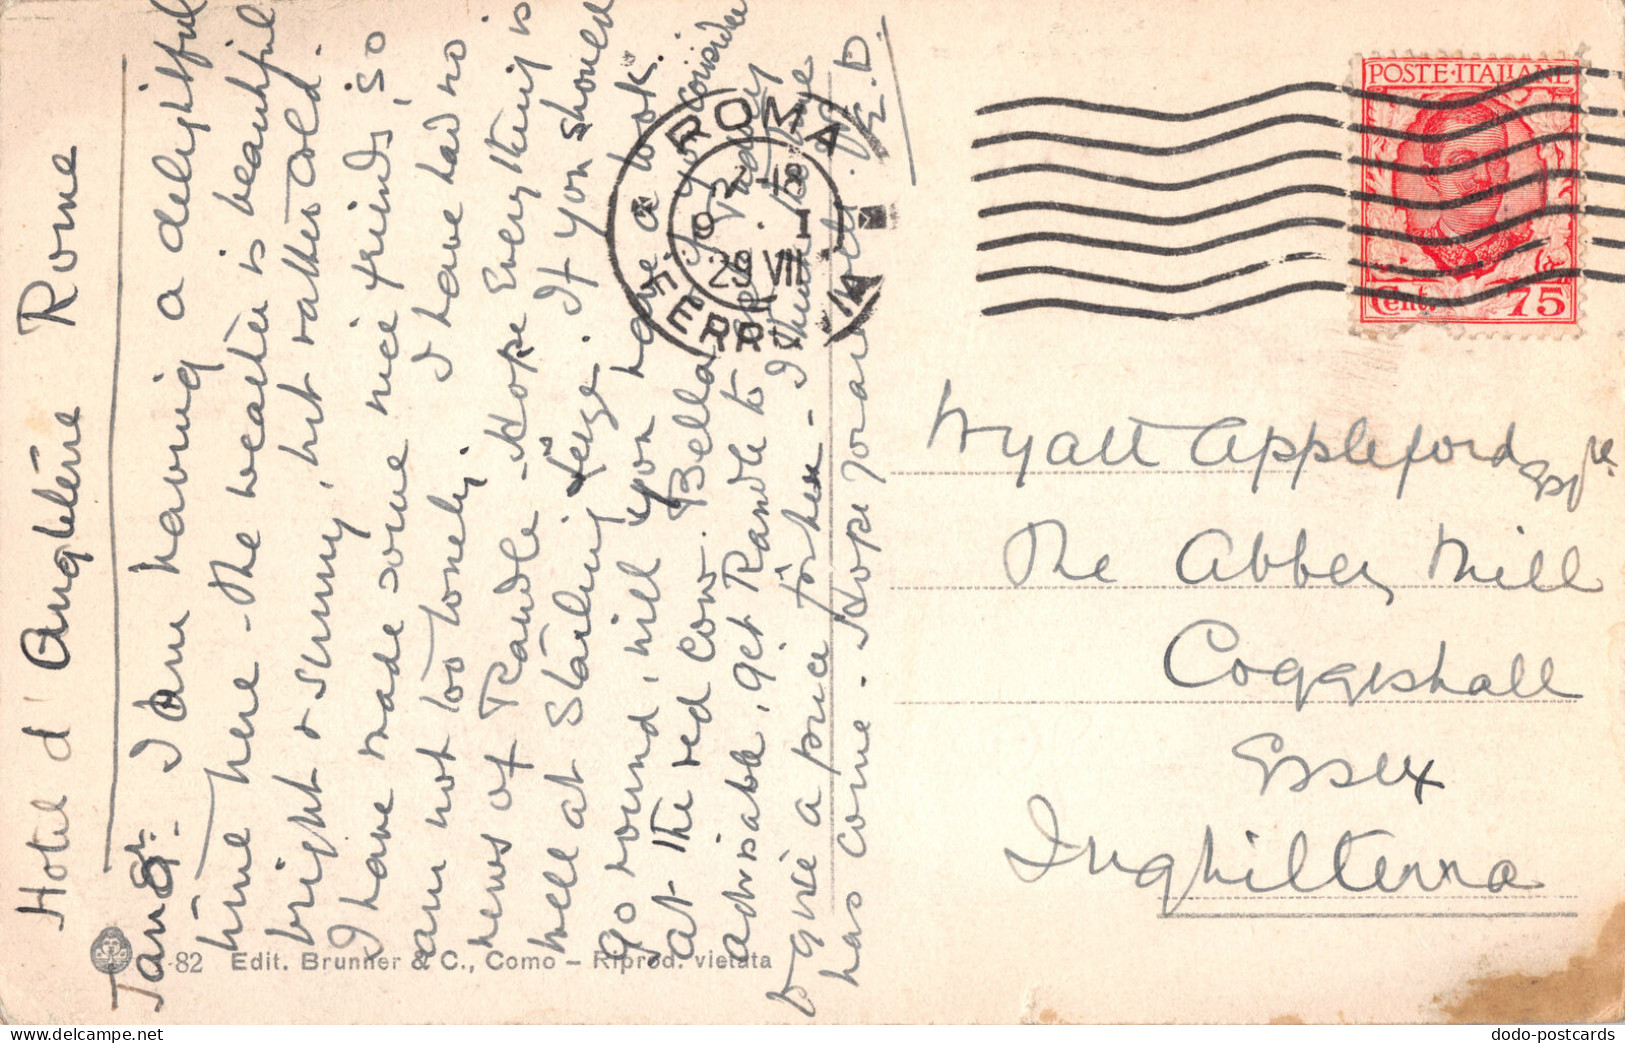 Hotel d'Angleterre Rome
Jan 8th. I am having a delightful
time here - The weather is beautiful
bright & sunny, but rather cold.
I have made some nice friends, so
am not too lonely. I have had no
news of Teawdle - Hope Everything is
well at Starling Leeze. If you should
go round, will you have a look
at the red cow Bella & if you consider
advisable, get Randle to
to give a price for her - I think
has come. Hope you are well. E.D.
ROMA
FERROVIA
9 I
29 VII
POSTE·ITALIANE
Cent. 75
Wyatt Appleford Esqre
The Abbey Mill
Coggeshall
Essex
Inghilterra
-82 Edit. Brunner & C., Como – Riprod. vietata
dodo-postcards